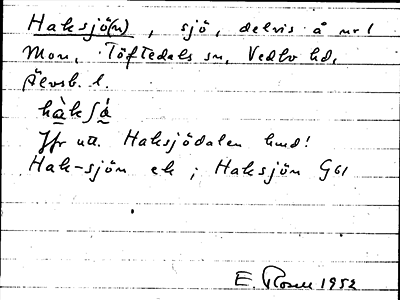 Haksjö(n), sjö, delvis å nr 1
Mon, Töftedals sn, Vedbo hd,
Älvsb. l.
hàkʃå̀
Jfr utt. Haksjödalen hmd!
Hak-sjön ek ; Haksjön G61
E. Rosen 1952